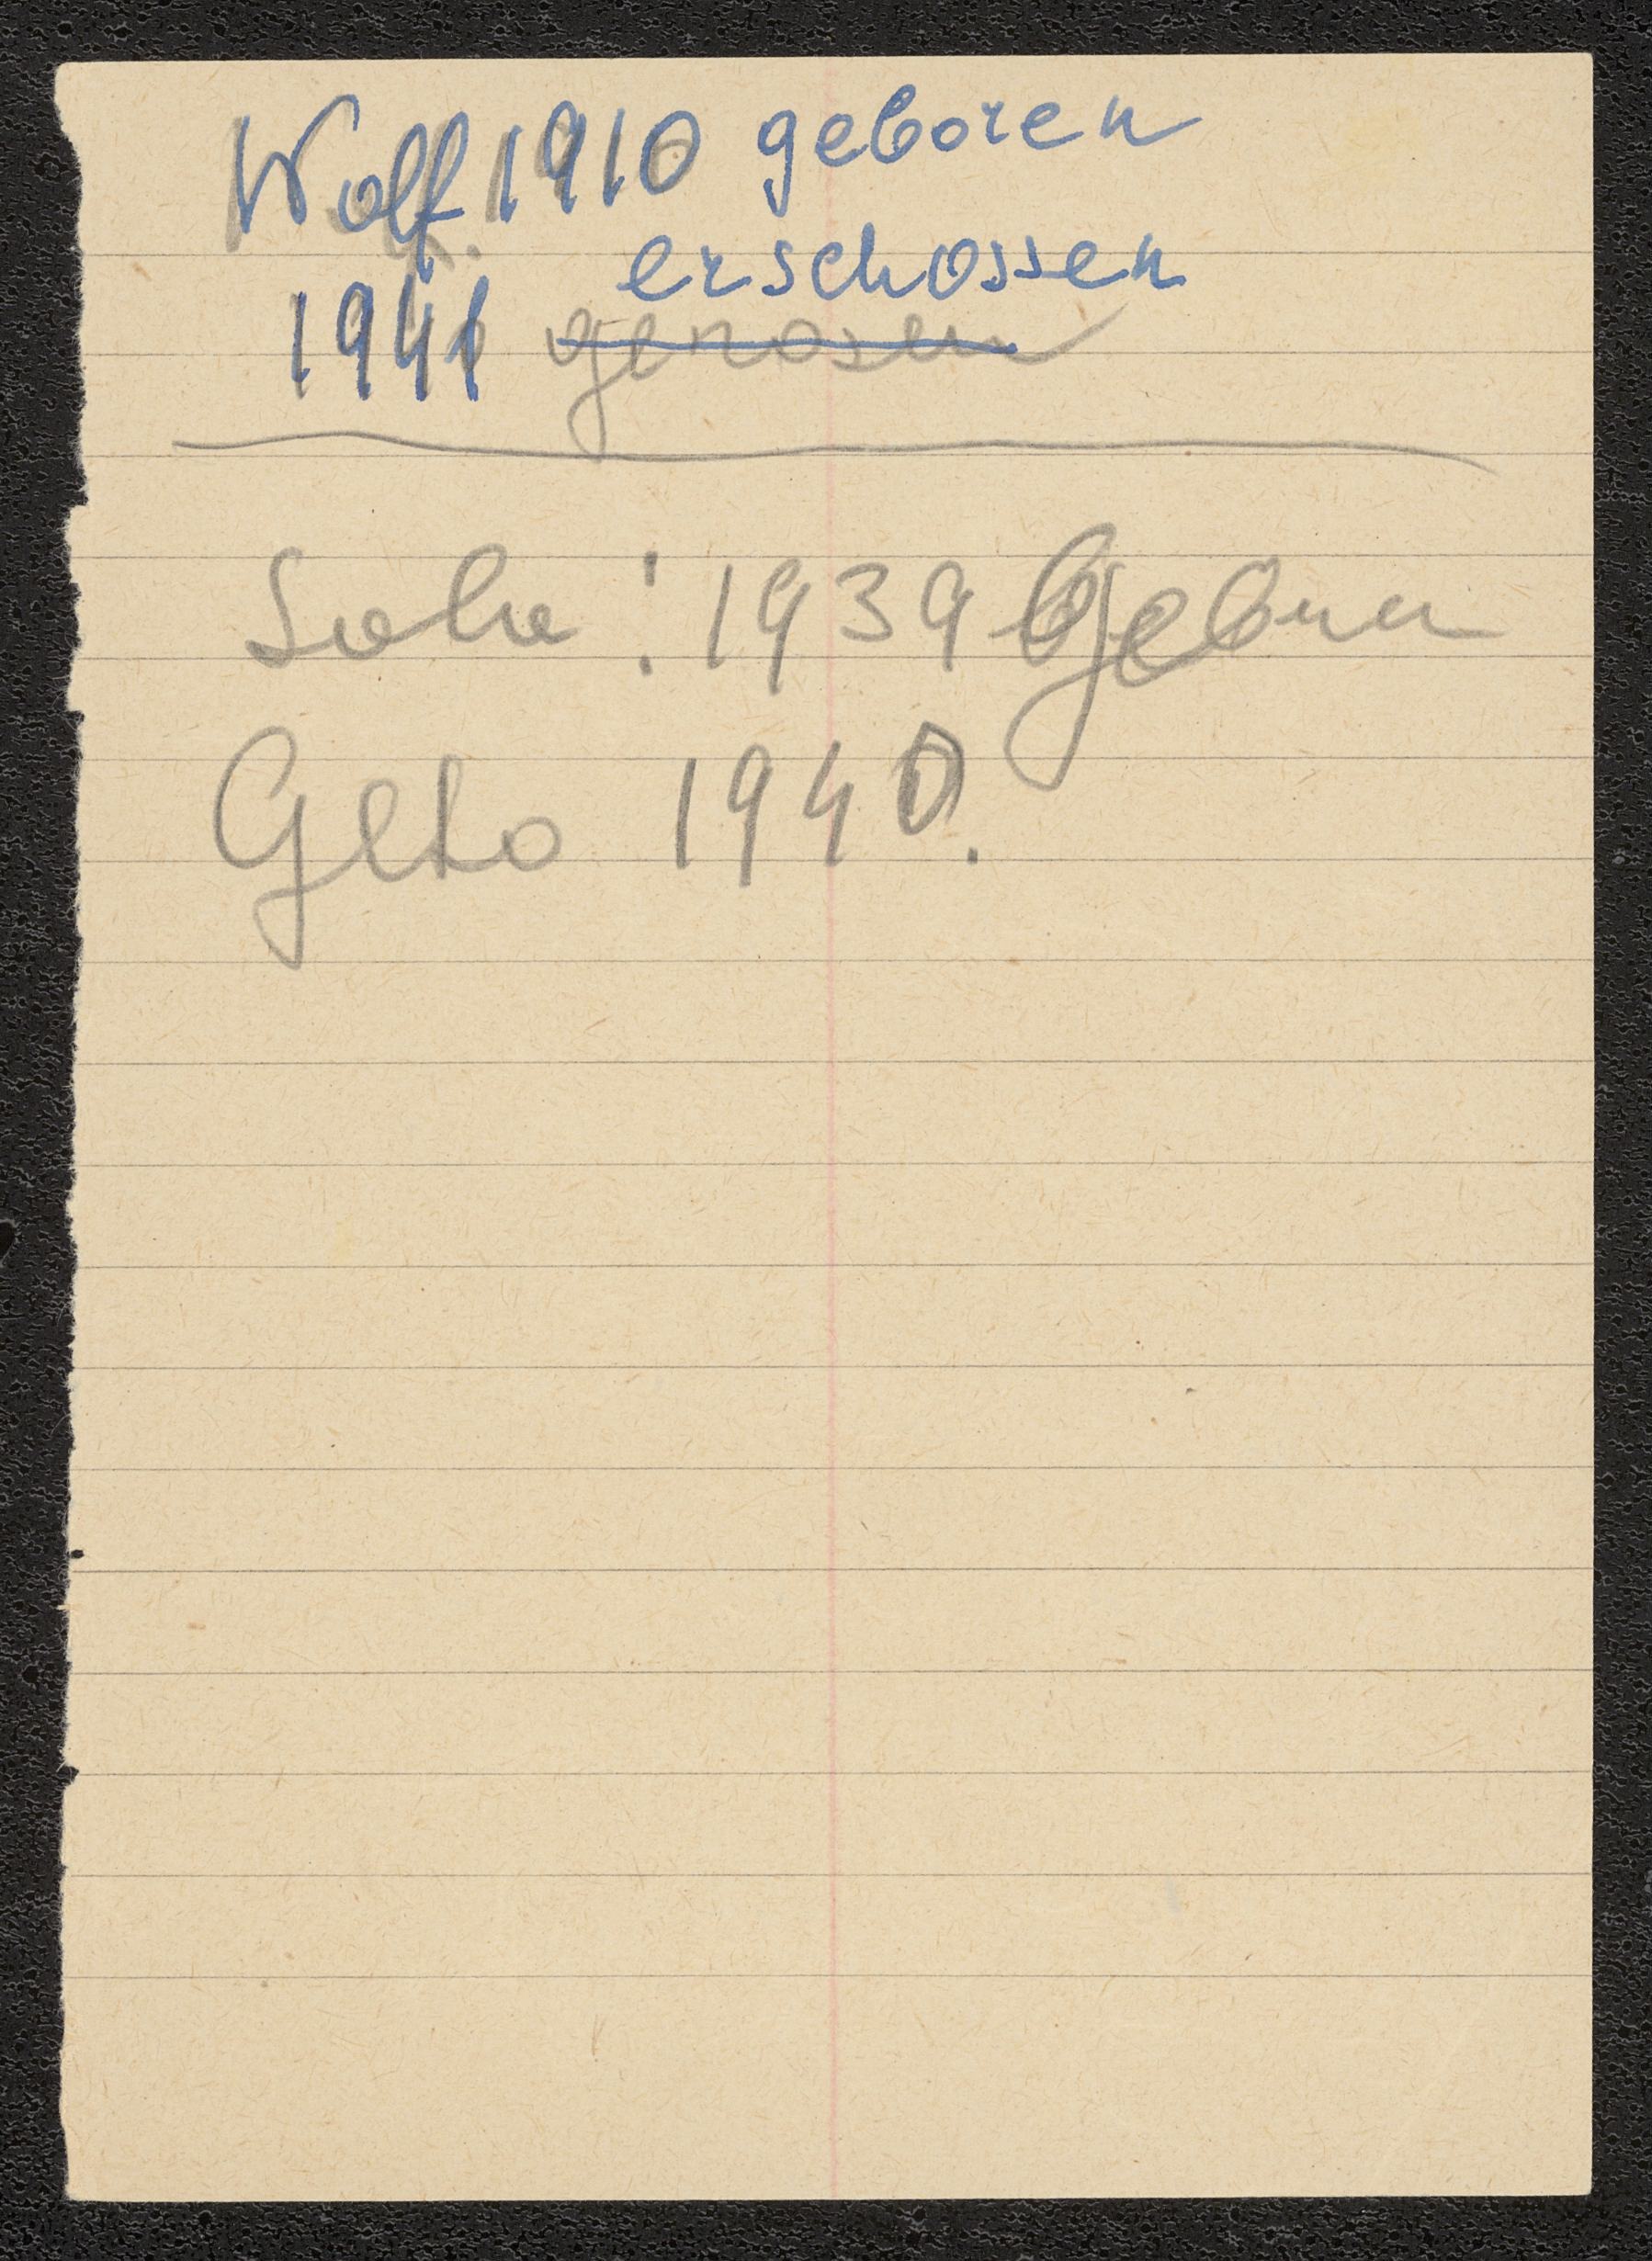 Wolf. 1910 geboren
erschossen
1941 genosen
Sohn : 1939 Geboren
Geto 1940.